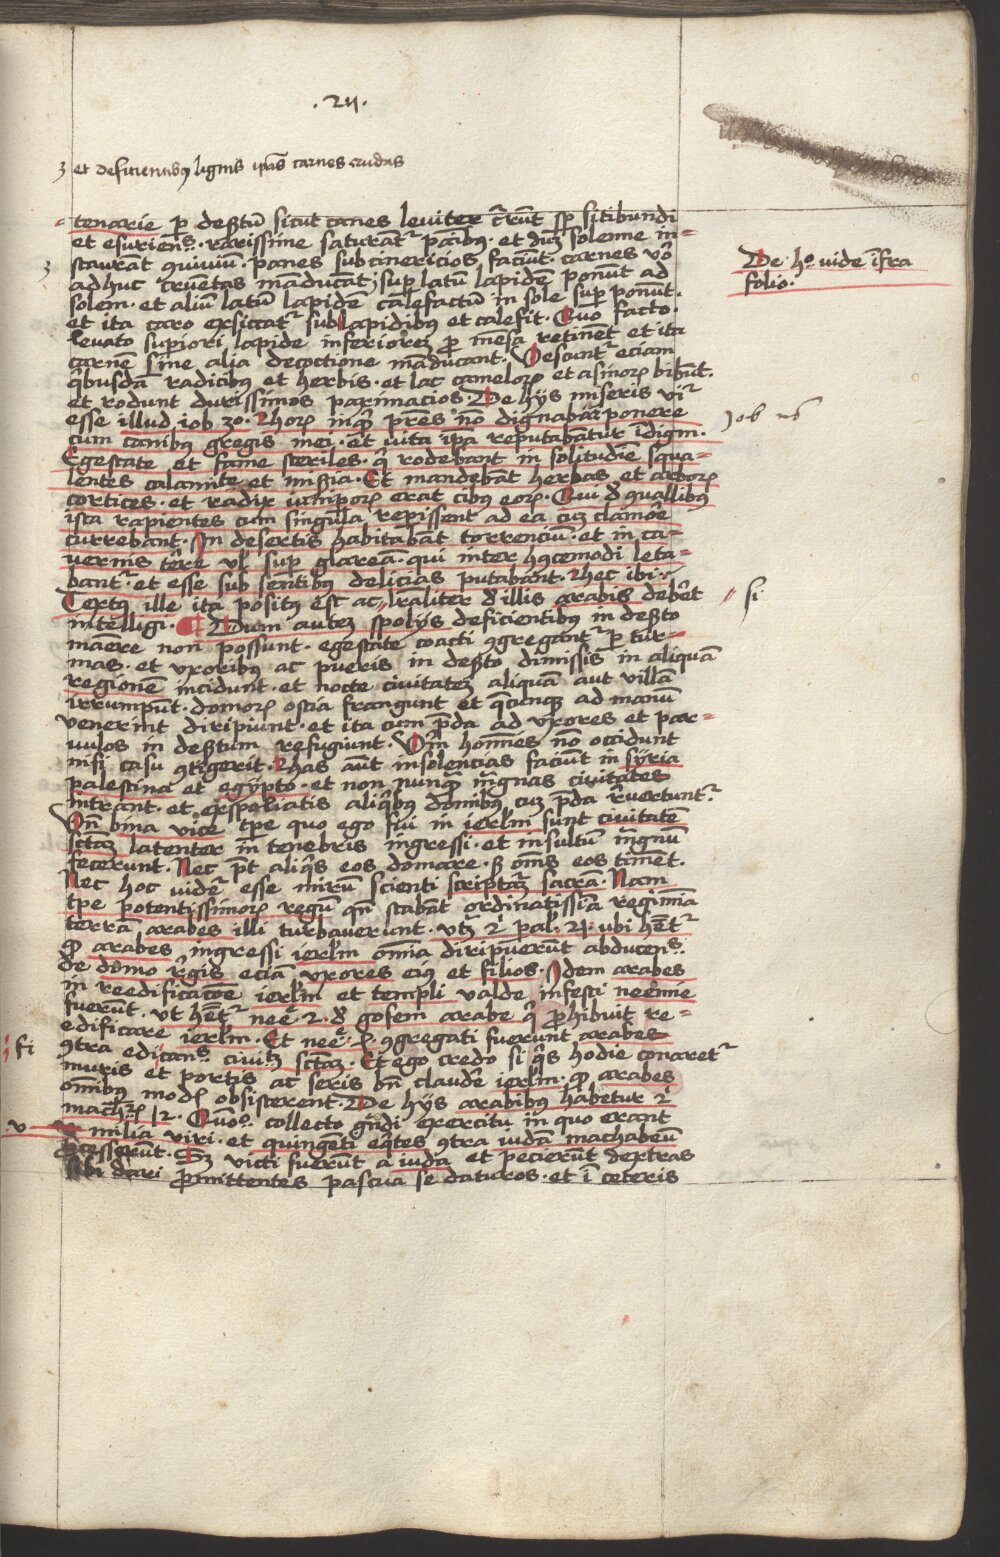 .211.
et deficientibus lignis ipsas carnes crudas
tenarie per desertum sicut canes leviter currunt semper sitibundi
et esuriens. rarissime saturantur panibus. et dum solenne in-
staurant conuiuium. panes subcinericios faciunt. carnes vero
adhuc cruentas manducant, super latum lapidem ponunt ad
solem. et alium latum lapidem calefactum in sole super ponunt.
et ita caro exsiccatur sub lapidibus et calefit. Quo facto.
levato superiori lapide inferiorem pro mensa retinent et ita
carnem sine alia decoctione manducant. Vescuntur eciam
quibusdam radicibus et herbis. et lac camelorum et asinorum bibunt.
et rodunt durissimos paximacios. De hys miseris videtur
esse illud iob 30. Quorum inquit patres non dignabar ponere
cum canibus gregis mei. et vita ipsa reputabantur indigni.
Egestate et fame steriles. qui rodebant in solitudine squa-
lentes calamitate et miseria. Et mandebant herbas et arborum
cortices. et radix iuniperorum erat cibus eorum. Qui de quallibus
ista rapientes cum singula reperissent ad ea cum clamore
currebant. In desertis habitabant torrencium. et in ca-
vernis terre vel super glaream. qui inter huiuscemodi leta-
bantur et esse sub sentibus delicias putabant. Hec ibi.
Textus ille ita positus est ac literaliter de illis arabis debet
intelligi. Dum autem spolys deficientibus in deserto
manere non possunt. egestate coacti congregantur per tur-
mas. et vxoribus ac pueris in deserto dimissis in aliquam
regionem incidunt. et nocte civitatem aliquam aut villam
irrumpunt. domorum ostia frangunt et quecunque ad manum
venerint diripiunt. et ita cum preda ad vxores et par-
vulos in desertum refugiunt. Verum homines non occidunt
nisi casu contigerit. Has autem insolencias faciunt in syria
palestina et egypto. et non nunquam magnas civitates
intrant. et exspoliatis aliquibus domibus cum preda revertuntur.
Unde bina vice tempore quo ego fui in ierusalem sunt civitatem
sanctam latenter in tenebris ingressi. et insultum magnum
fecerunt. Nec potest aliquis eos domare. sed omnes eos timent.
Nec hoc videtur esse mirum scienti scripturam sacram. Nam
tempore potentissimorum regum quando stabant ordinatissima regimina
terram arabes illi turbaverunt. vt 2 paral. 21. vbi habetur
quod arabes ingressi ierusalem omnia diripuerunt abducens
de domo regis eciam vxores eius et filios. Idem arabes
in reedificatione ierusalem et templi valde infesti neemie
fuerunt. vt habetur nee. 2. de gosem arabe qui prohibuit re-
edificare ierusalem. Et nee. 4. congregati fuerunt arabes
contra edificans civitatem sanctam. Et ego credo si quis hodie conaretur
muris et portis ac seris bene claudere ierusalem. quod arabes
omnibus modis obsisterent. De hys arabibus habetur 2
mach. 12. Quomodo collecto grandi exercitu in quo erant
v milia viri. et quingenti equites contra iudam machabeum
processerunt. Sed victi fuerunt a iuda et pecierunt dextras
sibi dari promittentes pascua se daturos. et in ceteris
De hoc vide infra
folio.
Job
si
fi
v